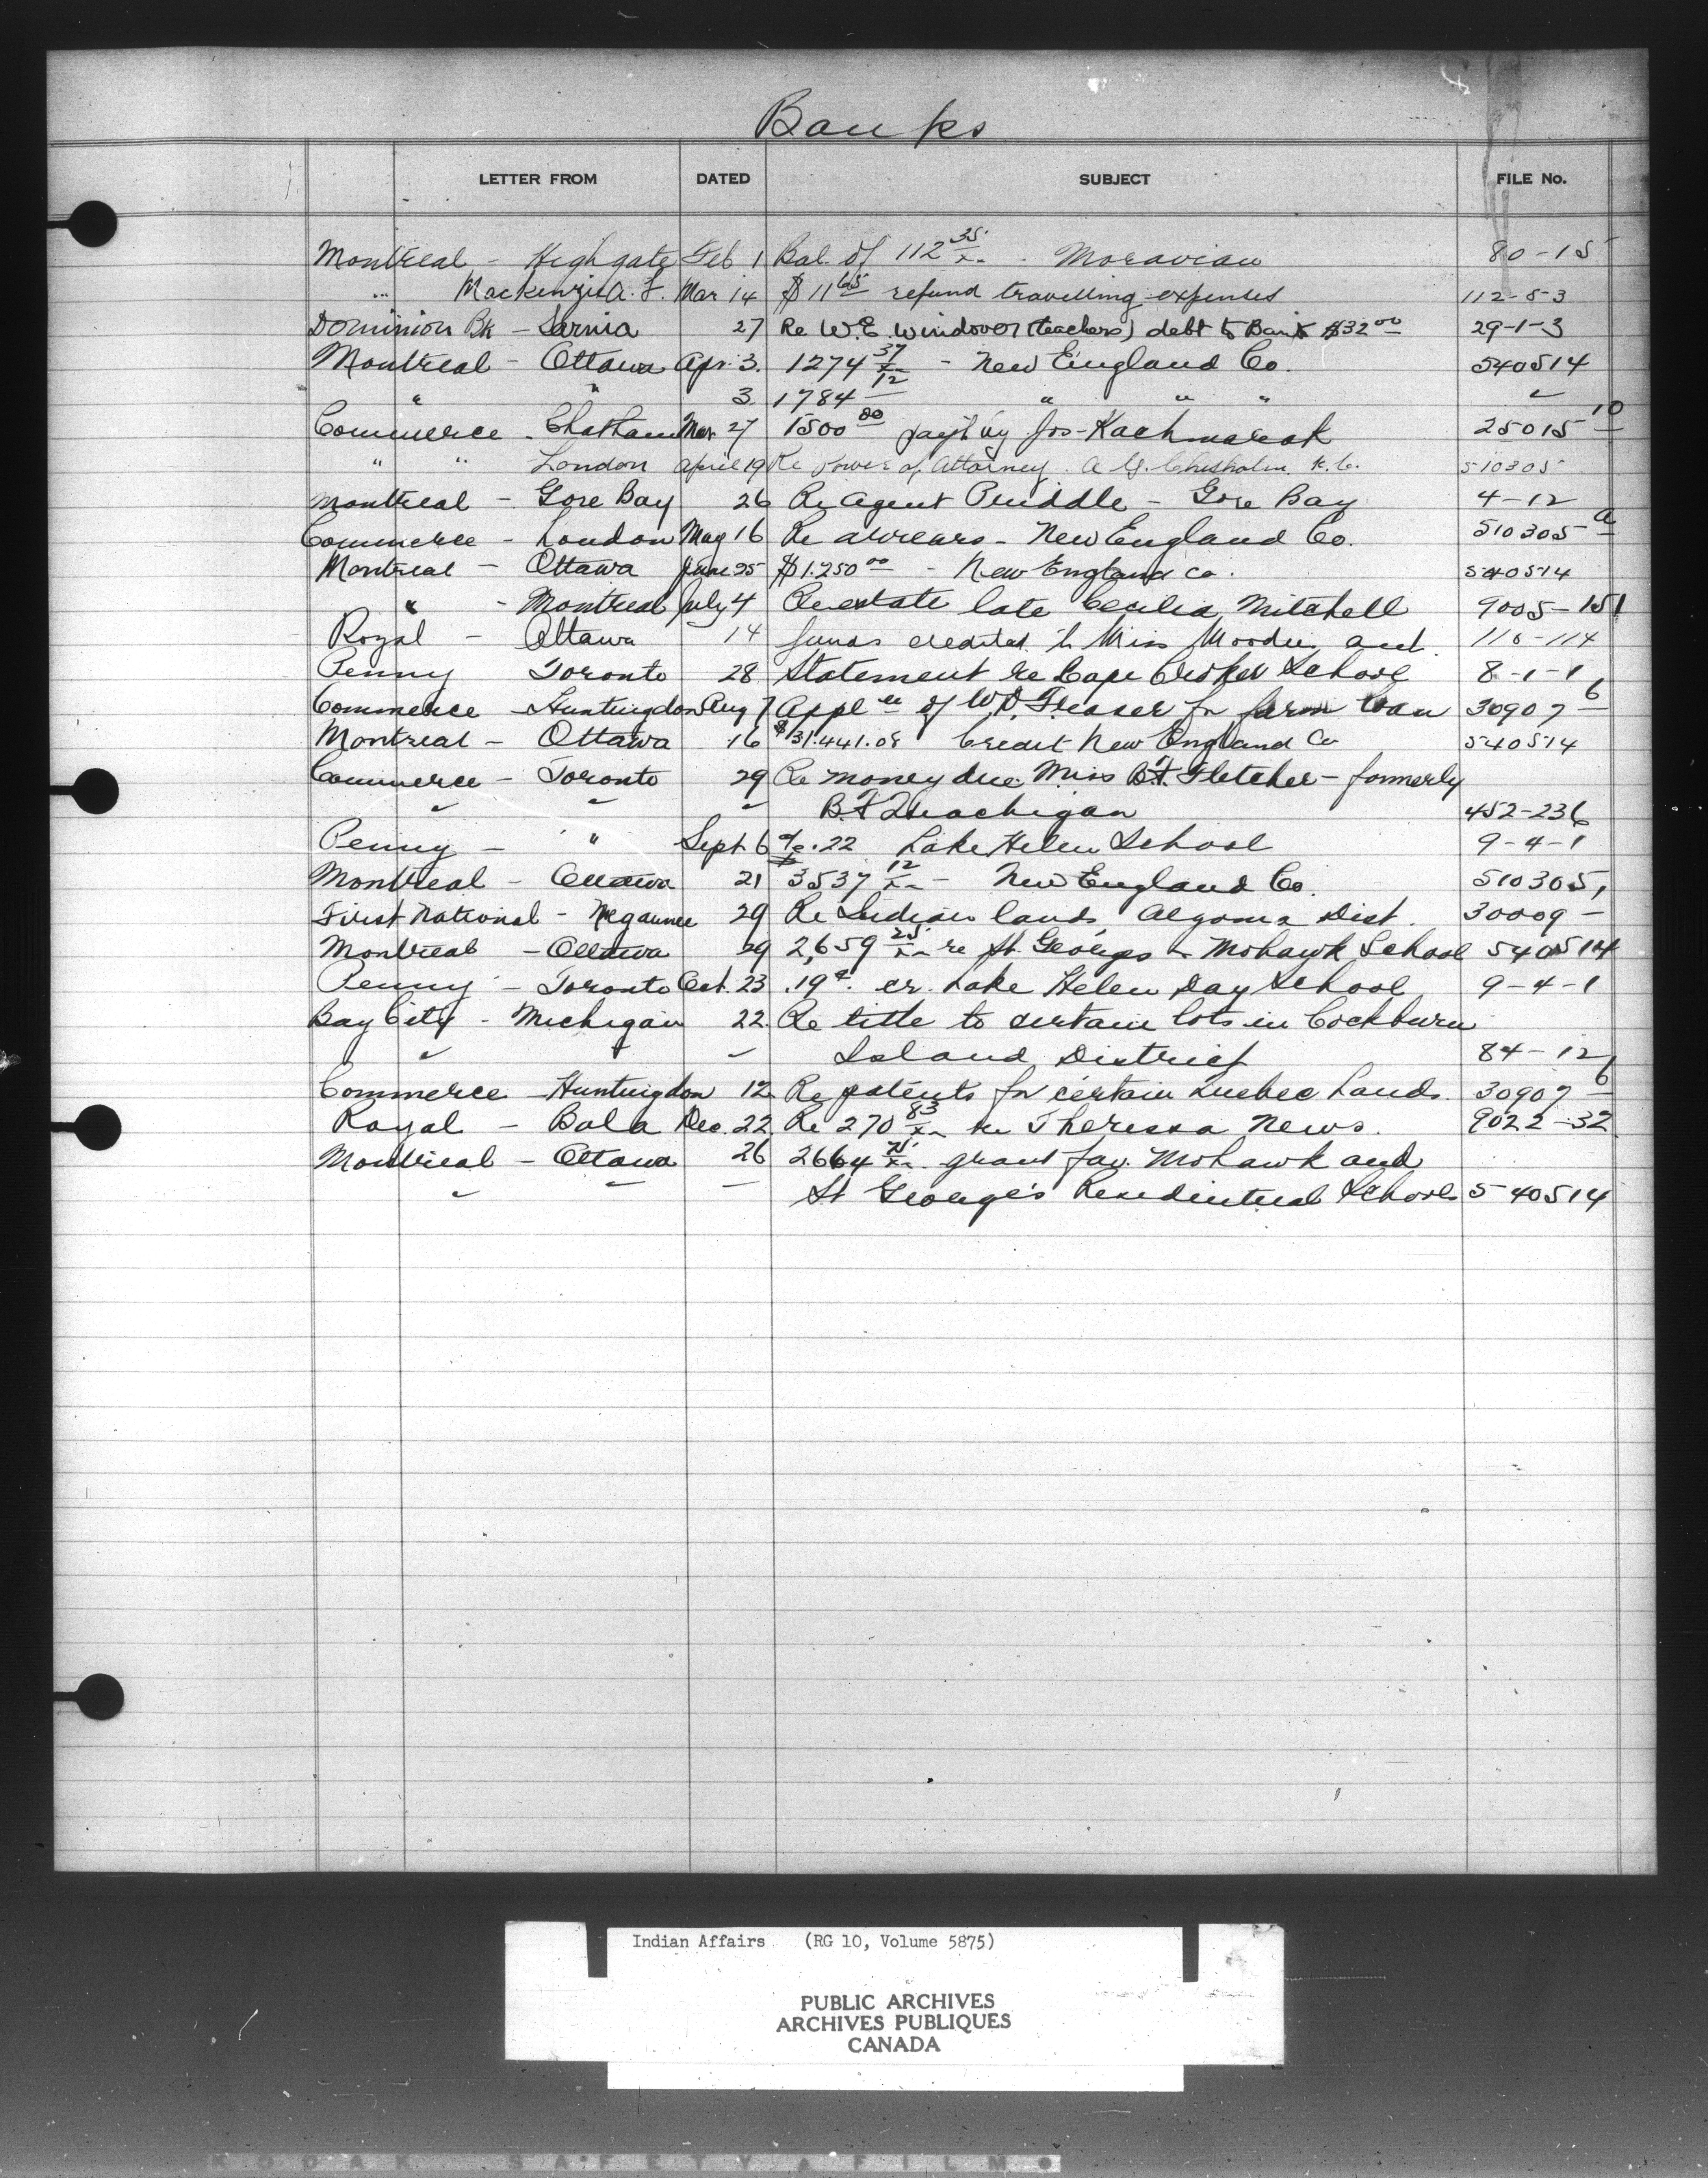 Banks
LETTER FROM DATED SUBJECT FILE No.
Montreal - Highgate Feb 1 Bal. of 112 35/xx - Moravian 80-15
" Mackenzie A. F. Mar 14 $11 65 refund travelling expenses 112-5-3
Dominion Bk - Sarnia 27 Re W.E. Windover (teachers) debt to Bank $32 00 29-1-3
Montreal - Ottawa Apr. 3. 1274 37/xx - New England Co. 540514
" " 3 1784 12 " " " "
Commerce - Chatham Mar 27 1500 00 pay't by Jos - Kachmarak 25015 10
" " London April 19 Re Power of Attorney. A. G. Chisholm K.C. 510305
Montreal - Gore Bay 26 Re Agent Priddle - Gore Bay 4-12
Commerce - London May 16 Re arrears - New England Co. 510305 a
Montreal - Ottawa June 25 $1.250 00 - New England Co. 540514
" - Montreal July 4 Re estate late Cecilia Mitchell 9005-151
Royal - Ottawa 14 funds credited to Miss Moodie 116-114
Penny Toronto 28 Statement re Cape Croker School 8-1-1
Commerce - Huntingdon Aug 7 Appl'n of W.D. Fraser for farm loan 30907 6
Montreal - Ottawa 16 $31.441.08 Credit New England Co 540514
Commerce - Toronto 29 Re money due Miss B.A. Fletcher - formerly
" " " B.A. 452-236
Penny - " Sept. 6 .22 Lake Helen School 9-4-1
Montreal - Ottawa 21 3537 12/xx - New England Co. 510305,
First National - Negaunee 29 Re Indian lands Algoma Dist. 30009 -
Montreal - Ottawa 29 2,659 25/xx re St. Georges - Mohawk School 540514
Penny - Toronto Oct. 23 .19 c. cr. Lake Helen Day School 9-4-1
Bay City - Michigan 22. Re title to certain lots in Cockburn
" " Island District 84-12
Commerce - Huntingdon 12 Re patents for certain Quebec Lands. 30907 6
Royal - Bala Dec. 22. Re 270 83/xx re Theressa News. 9022-32
Montreal - Ottawa 26 2664 71/xx grant fav. Mohawk and
" " " St George's Residential Schools 540514
Indian Affairs (RG 10, Volume 5875)
PUBLIC ARCHIVES
ARCHIVES PUBLIQUES
CANADA
KODAK SAFETY A FILM